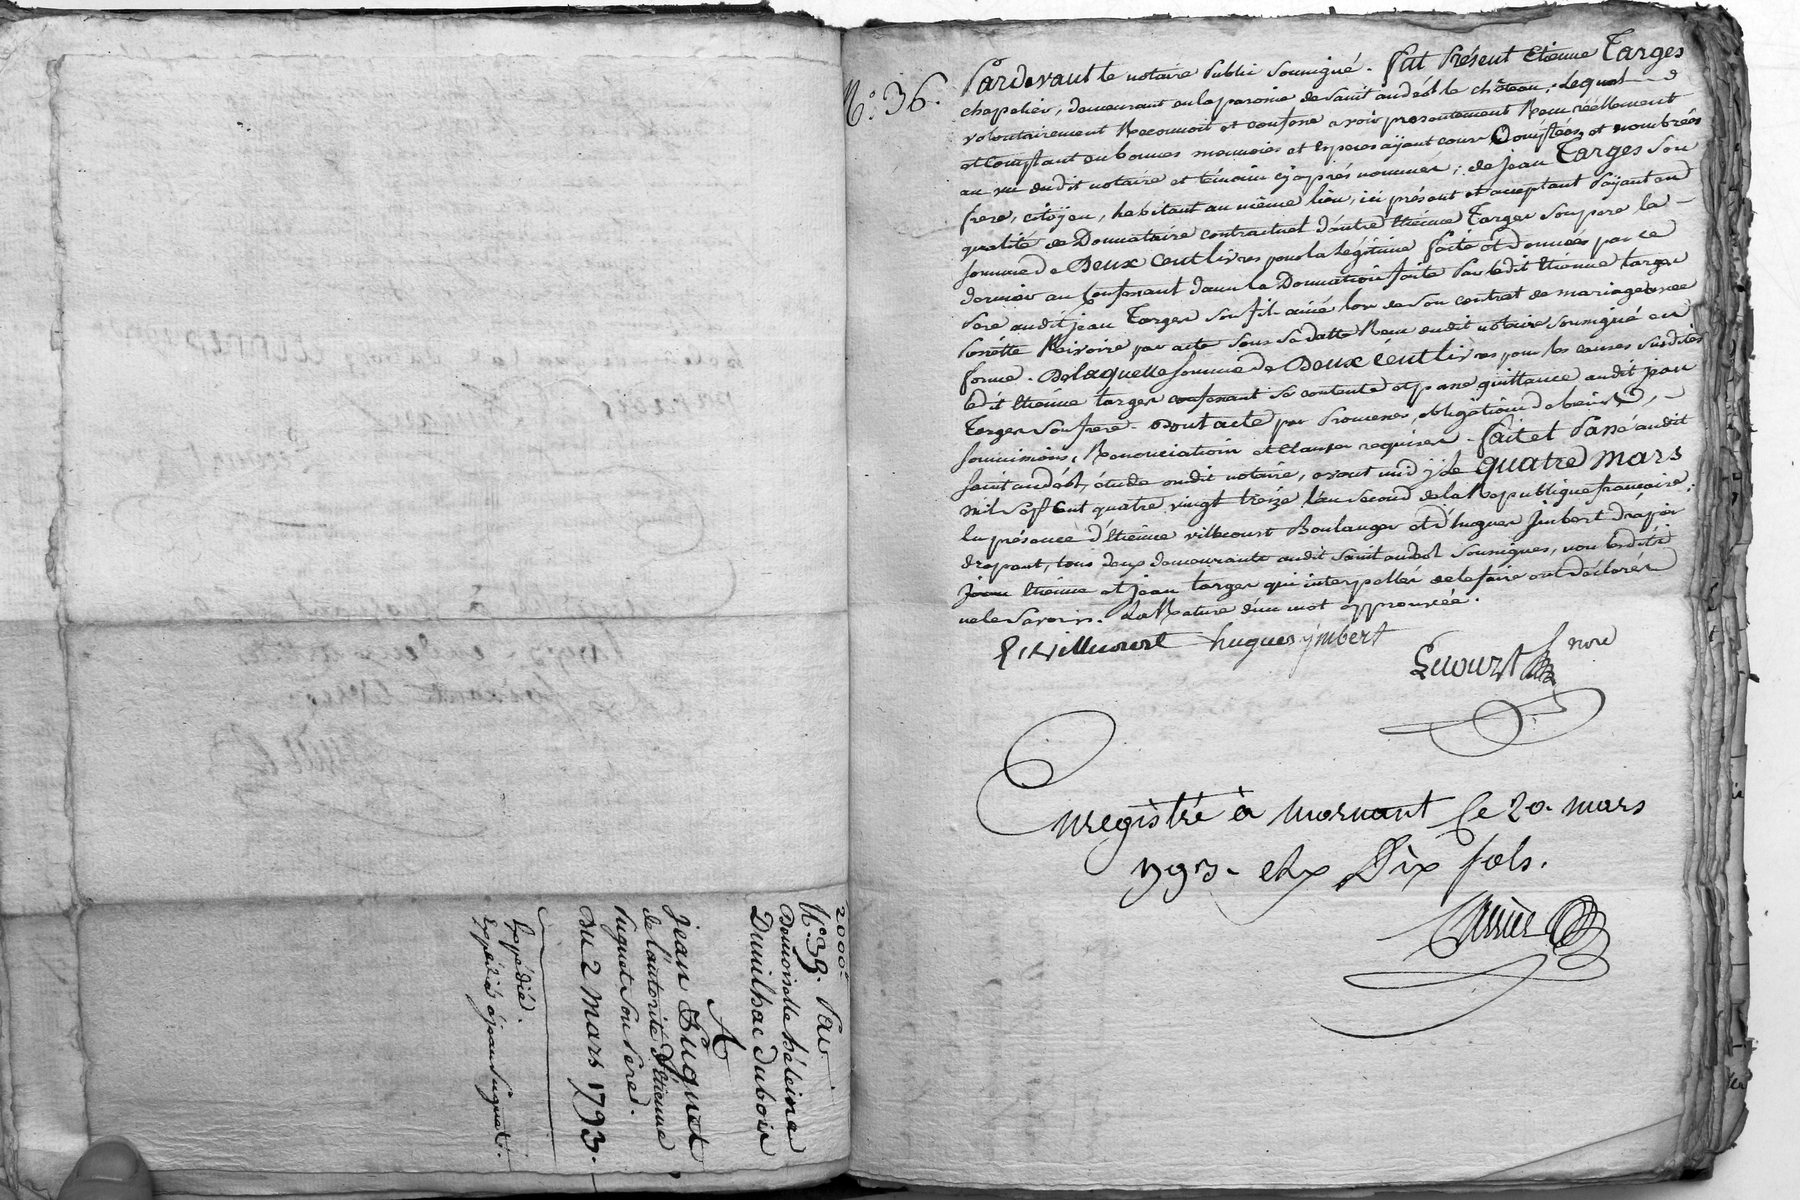 2000#
N.° 35. Par
Demoiselle héleine
Dumilhac dubois
A
jean Suguet
de l'autorité d'Etienne
Suguet son Pere.
Du 2 Mars 1793.
Expédié.
Expédié à jean Suguet.
N.° 36. Pardevant le notaire Public soussigné. fut Présent Etienne Targes
chapelier, demeurant en la paroisse de saint andéol le château, Lequel
volontairement Reconnoit et confesse avoir présentement Reçu réellement
et comptant en bonnes monnoies et Espèces ayant cour Comptées et nombrées
au vu dudit notaire et témoins cy après nommés; de jean Targes son
frere, citöyen, habitant au même lieu, ici présent et acceptant Payant en
qualité de Donnataire contractuel d'autre Etienne Targes son pere la
somme de Deux cent livres pour la Légitime faite et données par ce
dernier au Confessant dans la Donnation faite Par ledit Etienne targes
Pere audit jean Targes son fils ainé lors de son contrat de mariage avec
Rivoire par acte sous sa datte Reçu dudit notaire soussigné en
forme. De laquelle somme de Deux cent livres pour les causes susdites
ledit Etienne targes confessant se contente et passe quittance audit jean
Targes son frere. Dont acte par Promesses, obligations de biens,
soumissions, Renonciations et clauses requises. fait et Passé audit
saint andéol, étude dudit notaire, avant midy le quatre mars
mil sept Cent quatre vingt treize l'an second de la République francaise.
En présence d'Etienne villecourt Boulanger et d'hugues Jmbert drapier
drapant, tous deux demeurants audit saint andéol soussignés, non lesdits
jean Etienne et jean targes qui interpellés de le faire ont déclarés
ne le savoir. La Rature d'un mot approuvée.
villecourt hugues ymbert
Lecourt nore
Enregistré à Mornant le 20. mars
1793. Dix sols.